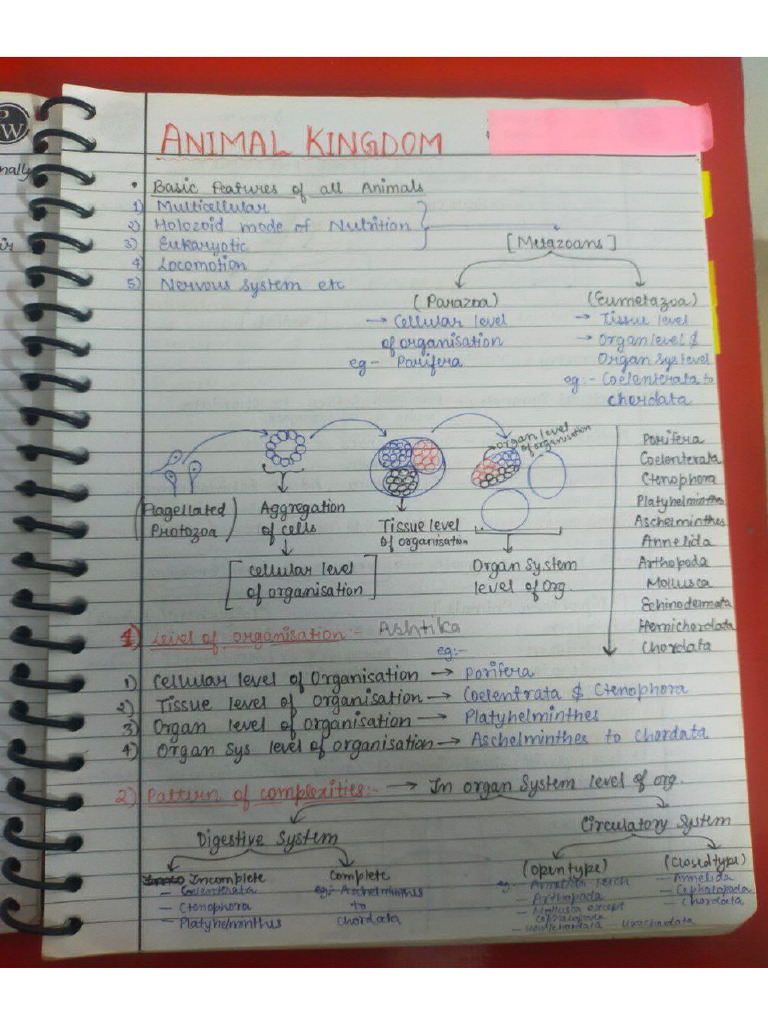 W
nally
ANIMAL KINGDOM
• Basic features of all Animals
1) Multicellular
2) Holozoid mode of Nutrition
3) Eukaryotic
[Metazoans]
4) Locomotion
5) Nervous system etc
(Parazoa)
→ Cellular level
of organisation
eg - Porifera
(Eumetazoa)
→ Tissue level
→ Organ level &
Organ sys level
eg:- Coelenterata to
chordata
(Flagellated
Protozoa)
Aggregation
of cells
[cellular level
of organisation]
Tissue level
of organisation
organ level
of organisation
Organ System
level of Org.
Porifera
Coelenterata
Ctenophora
Platyhelminthes
Aschelminthes
Annelida
Arthopoda
Mollusca
Echinodermata
Hemichordata
Chordata
1) Level of organisation:- Ashtika
eg:-
1) Cellular level of Organisation → Porifera
2) Tissue level of organisation → Coelentrata & Ctenophora
3) Organ level of organisation → Platyhelminthes
4) Organ Sys level of organisation → Aschelminthes to Chordata
2) Pattern of complexities:- → In organ System level of org.
Digestive System
Incomplete
- Coelenterata
- Ctenophora
- Platyhelminthus
complete
eg:- Aschelminthus
to
chordata
Circulatory System
(Open type)
eg - Annelida - leech
- Arthopoda
- Mollusca except
cephalopoda
- Hemichordata - Urochordata
(Closed type)
- Annelida
- Cephalopoda
- Chordata